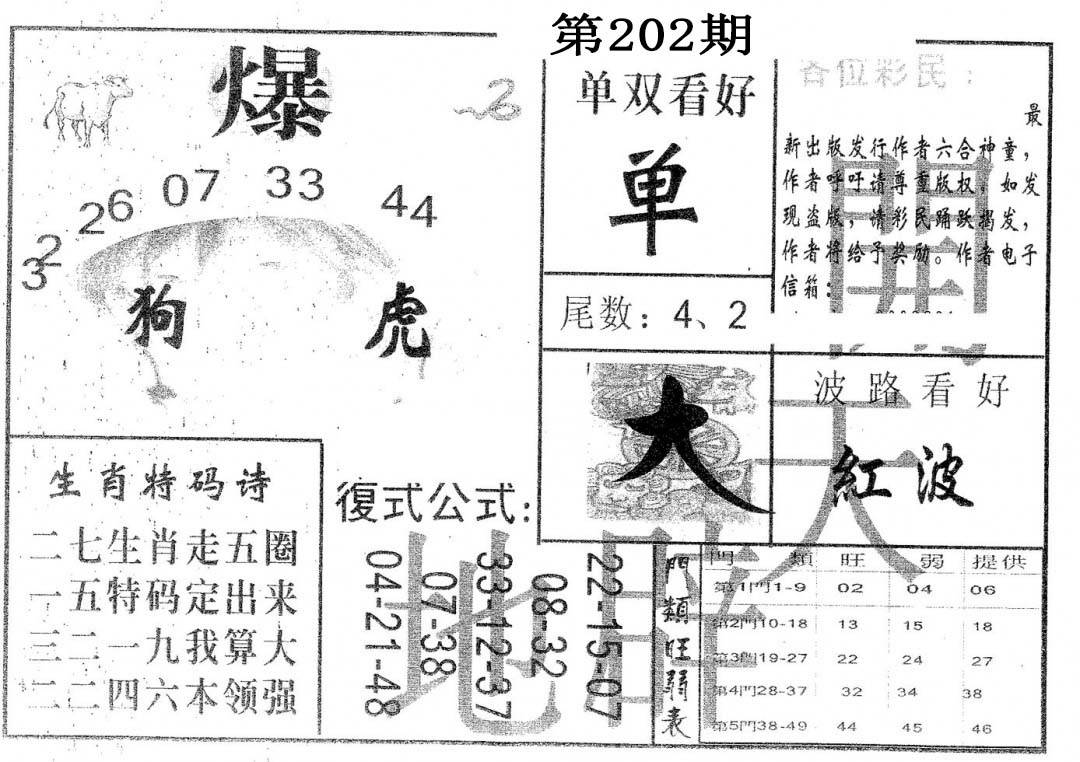 第202期
爆
32
26
07
33
44
狗
虎
单双看好
单
尾数：4、2
各位彩民：
最
新出版发行作者六合神童，
作者呼吁请尊重版权，如发
现盗版，情彩民踊跃揭发，
作者将给予奖励。作者电子
信箱：
大
波路看好
紅波
生肖特码诗
二七生肖走五圈
一五特码定出来
三二一九我算大
二二四六本领强
復式公式：
04-21-48
07-38
33-12-37
08-32
22-15-07
門類旺弱表
門 類 旺 弱 提供
第1門1-9 02 04 06
第2門10-18 13 15 18
第3門19-27 22 24 27
第4門28-37 32 34 38
第5門38-49 44 45 46